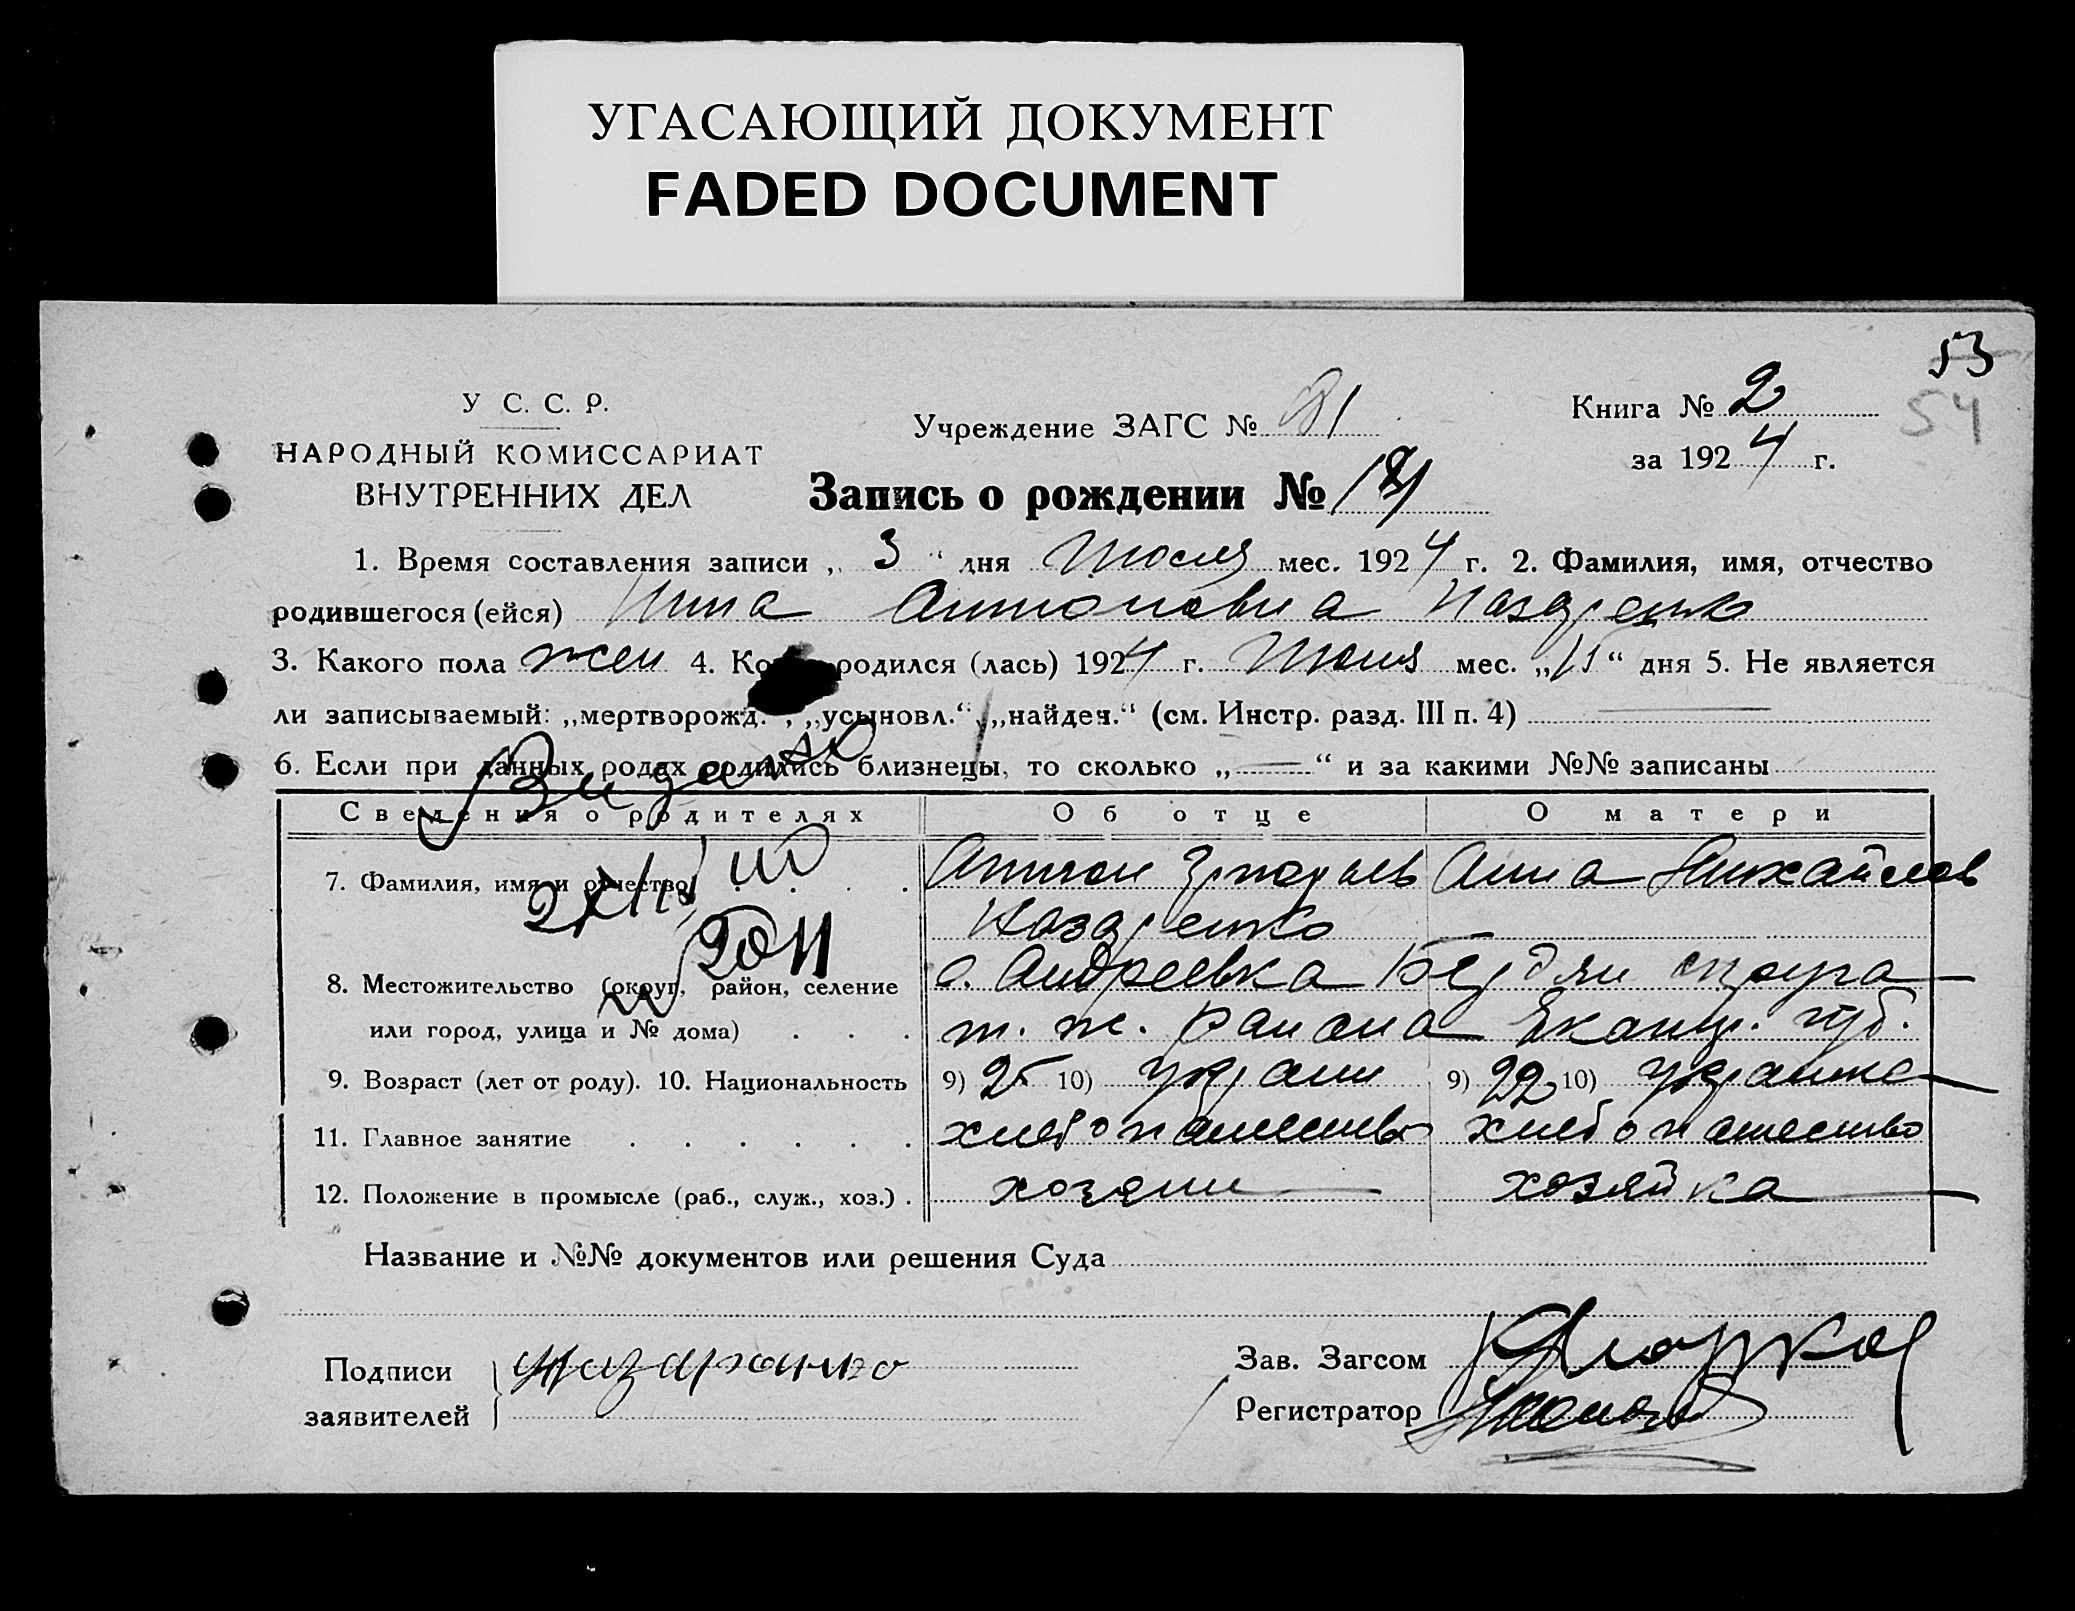 УГАСАЮЩИЙ ДОКУМЕНТ
FADED DOCUMENT
53
54
У С. С. Р.
НАРОДНЫЙ КОМИССАРИАТ
ВНУТРЕННИХ ДЕЛ
Учреждение ЗАГС №
Книга № 2
за 1924 г.
Запись о рождении №
1. Время составления записи „ 3 “ дня Июля мес. 1924 г. 2. Фамилия, имя, отчество
родившегося (ейся) Нина Антоновна Назаренко
3. Какого пола жен 4. Ко родился (лась) 1924 г. Июня мес. „15“ дня 5. Не является
ли записываемый: „мертворожд.“, „усыновл.“, „найден.“ (см. Инстр. разд. III п. 4) —
6. Если при данных родах родились близнецы, то сколько „—“ и за какими №№ записаны
Сведения о родителях Об отце О матери
7. Фамилия, имя и отчество Антон Анна Михайлов
Назаренко
8. Местожительство (округ, район, селение с. Андреевка Бердян округа
или город, улица и № дома) . . . района Екатер. губ.
9. Возраст (лет от роду). 10. Национальность 9) 25 10) украин 9) 22 10) украинка
11. Главное занятие . . . . . . хлебопашество хлебопашество
12. Положение в промысле (раб., служ., хоз.) . хозяин хозяйка
Название и №№ документов или решения Суда
Подписи
заявителей
Назаренко
Зав. Загсом
Регистратор